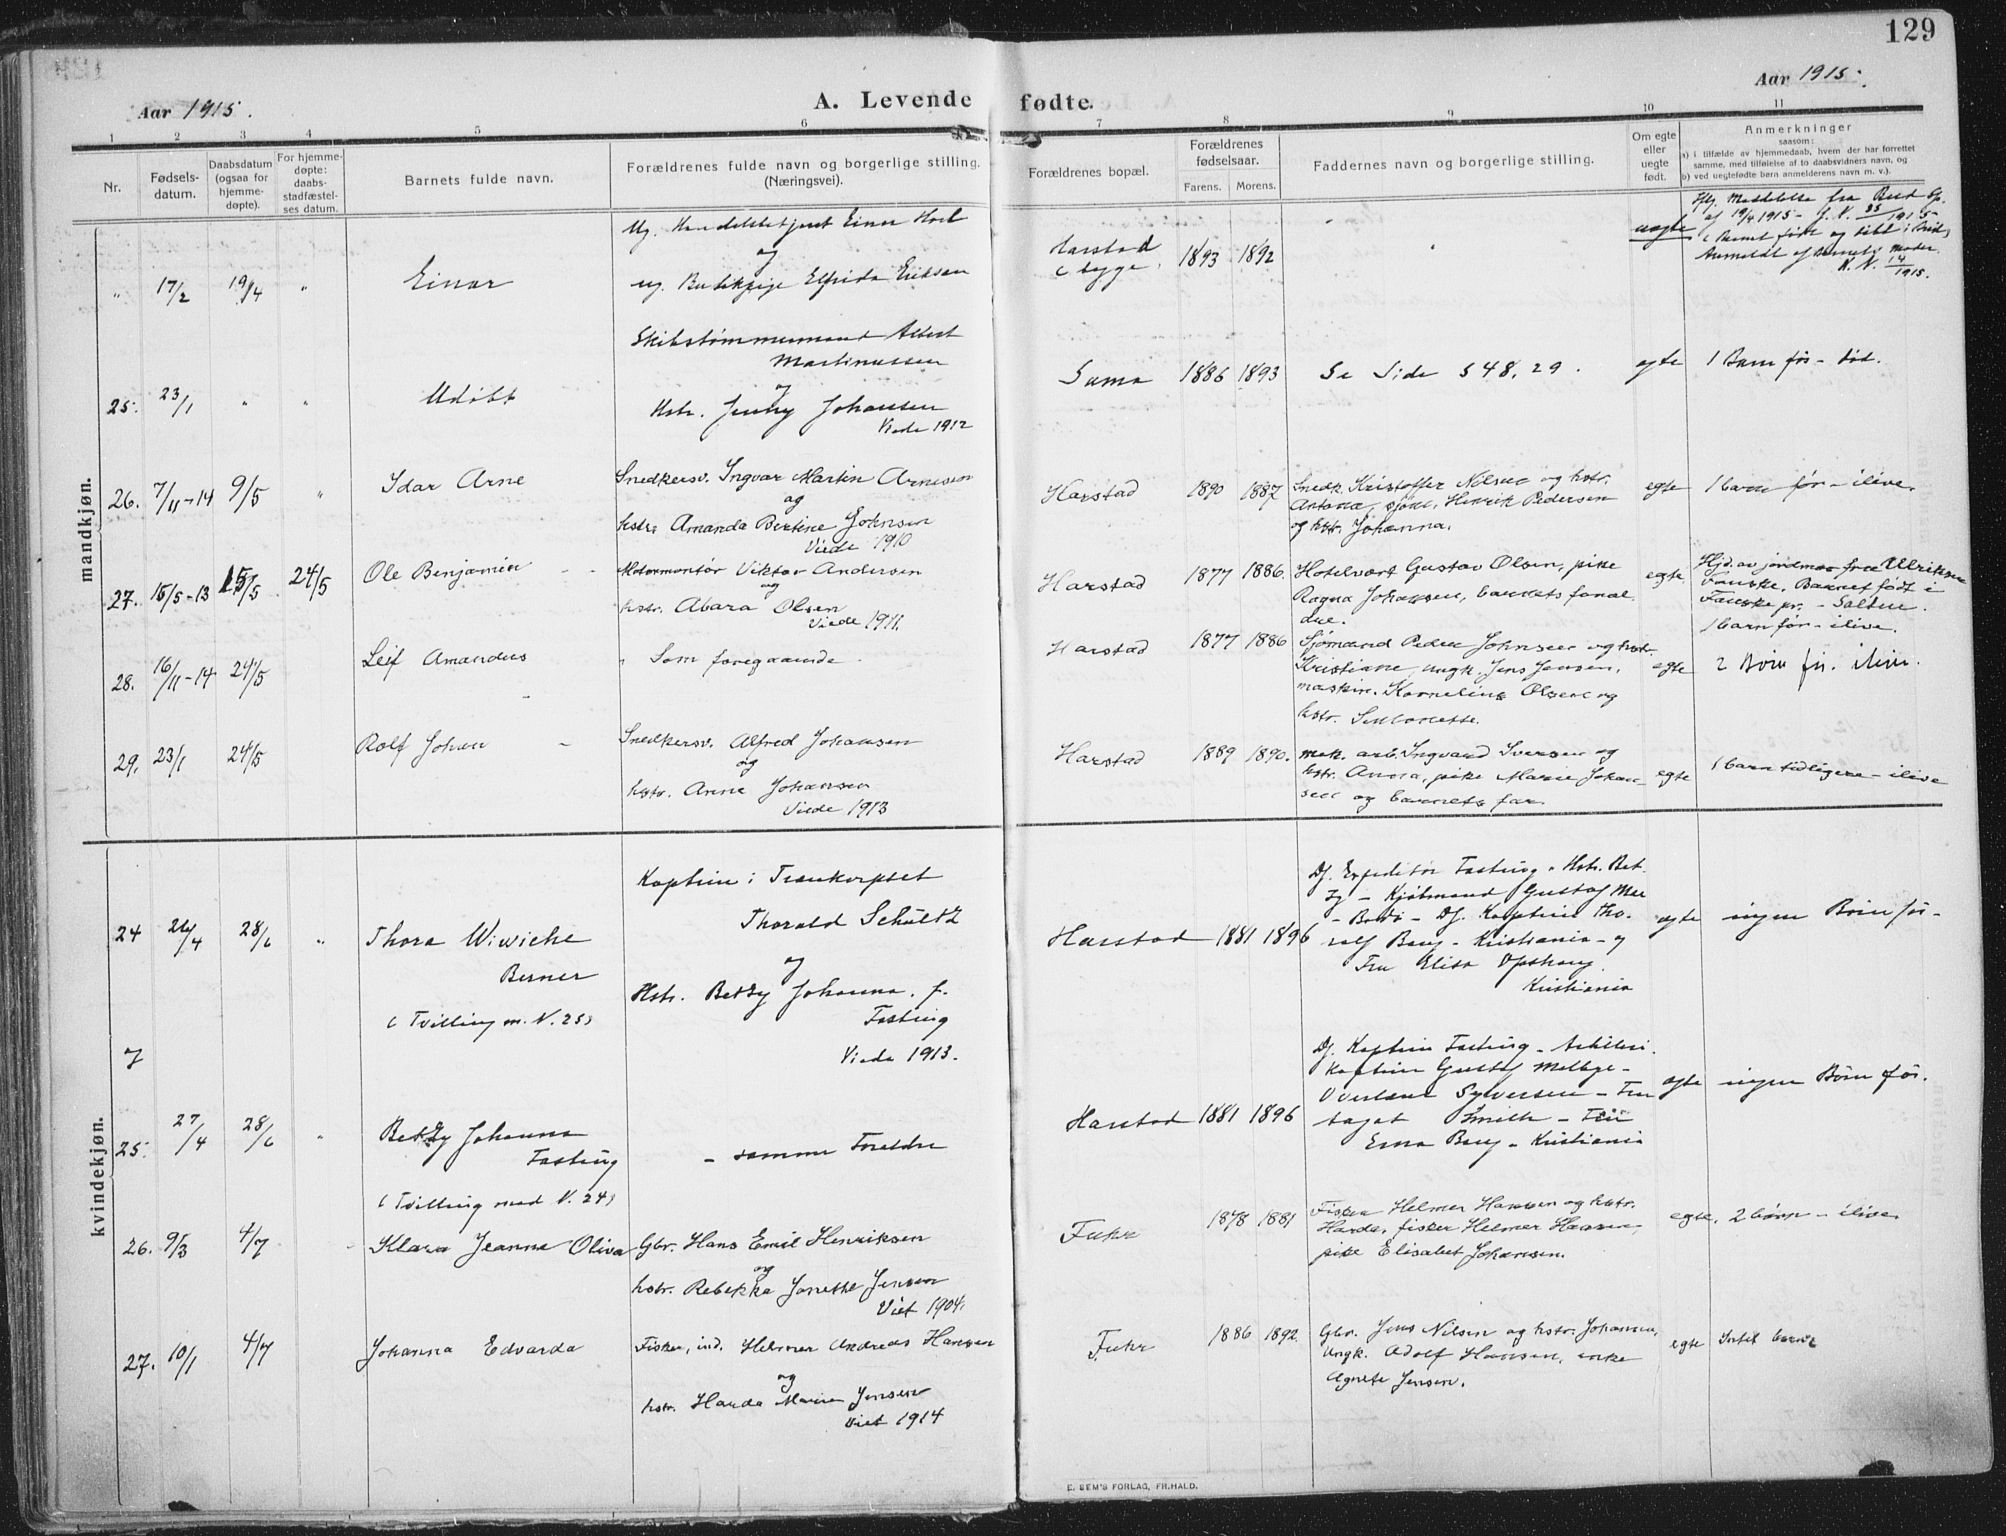 129
Aar 1915.
A. Levende fødte.
Aar 1915.
1 2 3 4 5 6 7 8 9 10 11
Nr.
Fødsels-
datum.
Daabsdatum
(ogsaa for
hjemme-
døpte).
For hjemme-
døpte:
daabs-
stadfæstel-
ses datum.
Barnets fulde navn.
Forældrenes fulde navn og borgerlige stilling.
(Næringsvei).
Forældrenes bopæl.
Forældrenes
fødselsaar.
Farens. Morens.
Faddernes navn og borgerlige stilling.
Om egte
eller
uegte
født.
Anmerkninger
saasom:
a) i tilfælde av hjemmedaab, hvem der har forrettet
samme, med tilføielse af to daabsvidners navn, og
b) ved uegtefødte børn anmelderens navn m. v.).
mandkjøn.
" 17/2 19/4 " Einar
Ug. Handelsbetjent Einar
og
ug. Butikpige Elfrida Eriksen
Harstad
1893 1892
uegte
af 19/4 1915
25. 23/1 " " Udøbt
Skibstømmermand Albert
Martinussen
og
Hstr. Jenny Johansen
Viede 1912
Sama 1886 1893 Se Side 548, 29. egte 1 Barn før - død.
26. 7/11-14 9/5 " Idar Arne
Snedkersv. Ingvar Martin Arnesen
og
hstr. Amanda Bertine Johnsen
Viede 1910
Harstad 1890 1887
Snedk. Kristoffer Nilsen og hstr.
Antona, sjøm. Henrik Pedersen
og hstr. Johanna.
egte 1 barn før - ilive.
27. 15/5-13 15/5 24/5 Ole Benjamin
Motormontør Viktor Andersen
og
hstr. Abara Olsen
Viede 1911.
Harstad 1877 1886.
Hotelvært Gustav Olsen, pike
Ragna Johansen, barnets foræl-
dre.
egte
Hjd. av jordmor frøe Ulriksen
Fauske. Barnet født i
Fauske pr. - Salten.
1 barn før - ilive.
28. 16/11-14 24/5 Leif Amandus
" Som foregaaende.
Harstad 1877 1886
Sjømand Peder Johnsen og hstr.
Kristiane, ungk. Jens Jensen,
maskin. Kornelius Olsen og
hstr.
egte 2 Børn før. ilive.
29. 23/1 24/5 Rolf Johan
Snedkersv. Alfred Johansen
og
hstr. Anne Johansen
Viede 1913
Harstad 1889 1890.
mek. arb. Ingvard Iversen og
hstr. Anna, pike Marie Johan-
sen og barnets far.
egte 1 barn tidligere - ilive
kvindekjøn.
24 26/4 28/6 " Thora Wiwicke
Berner
(Tvilling m. N. 25)
Kaptein i Trænkorpset
Thorald Schultz
og
Hstr. Betzy Johanna, f.
Fasting
Viede 1913.
Harstad 1881 1896
Df. Expeditør Fasting - Hstr. Bet-
zy - Kjøbmand Gustaf
- Bodø - Df. Kaptein Tho-
ralf Berg - Kristiania - og
Fru Elisa
Kristiania
egte ingen Børn før -
7
25. 27/4 28/6 " Betzy Johanna
Fasting
(Tvilling med N. 24)
- samme Foreldre
Harstad 1881 1896
Df. Kaptein Fasting - Artilleri-
kaptein Gustaf
Overlærer Syversen - Fru
Smith - Fru
Erna Berg - Kristiania
egte ingen Børn før.
26. 9/3 4/7 - Klara Jeanna Oliva
Gbr. Hans Emil Henriksen
og
hstr. Rebekka Janetha Jensen
Viet 1904.
Fuhr 1878 1881
Fisker Helmer Hansen og hstr.
Harda, fisker Helmer Hansen,
pike Elisabet Johansen.
egte. 2 børn - ilive.
27. 10/1 4/7 Johanna Edvarda
Fisker, ind. Helmer Andreas Hansen
og
hstr. Harda Marie Jensen
Viet 1914
Fuhr 1886 1892.
Gbr. Jens Nilsen og hstr. Johanna,
ungk. Adolf Hansen, enke
Agnete Jensen.
egte Intet barn
E. SEM'S FORLAG, FR.HALD.